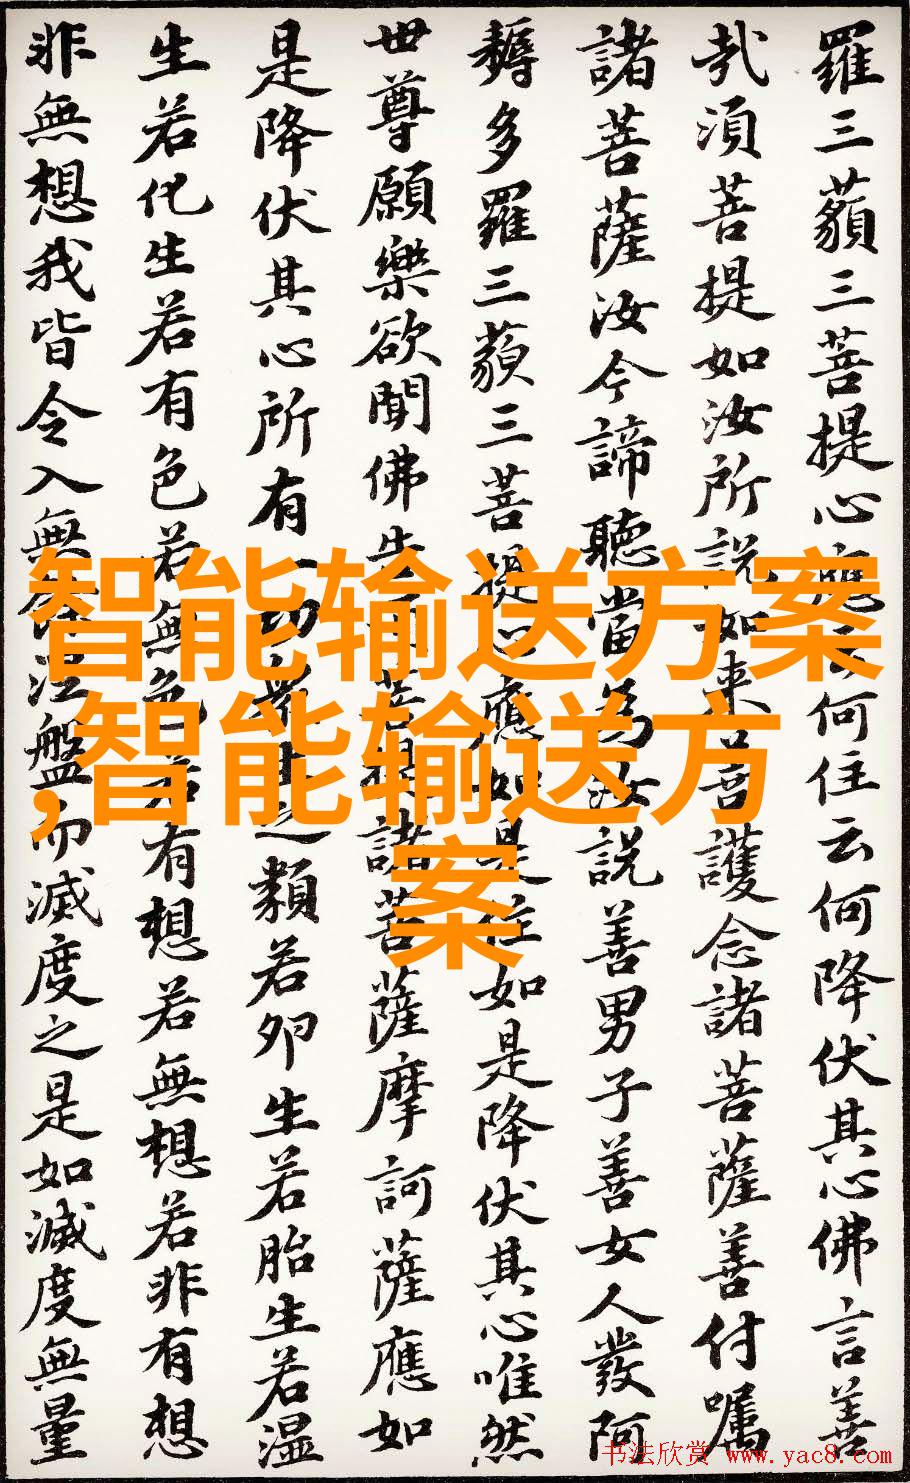 羅三藐三菩提心應云何住云何降伏其心佛言善
哉須菩提如汝所說如來善護念諸菩薩善付囑
諸菩薩汝今諦聽當為汝說善男子善女人發阿
耨多羅三藐三菩提心應如是住如是降伏其心唯然
世尊願樂欲聞佛告菩提諸菩薩摩訶薩應如
是降伏其心所有一切眾生之類若卵生若胎生若湿
生若化生若有色若無色若有想若無想若非有想
非無想我皆令入無餘涅盤而滅度之是如滅度無量
智能输送方案
,智能输送方
案
书法欣赏 www.yac8.com